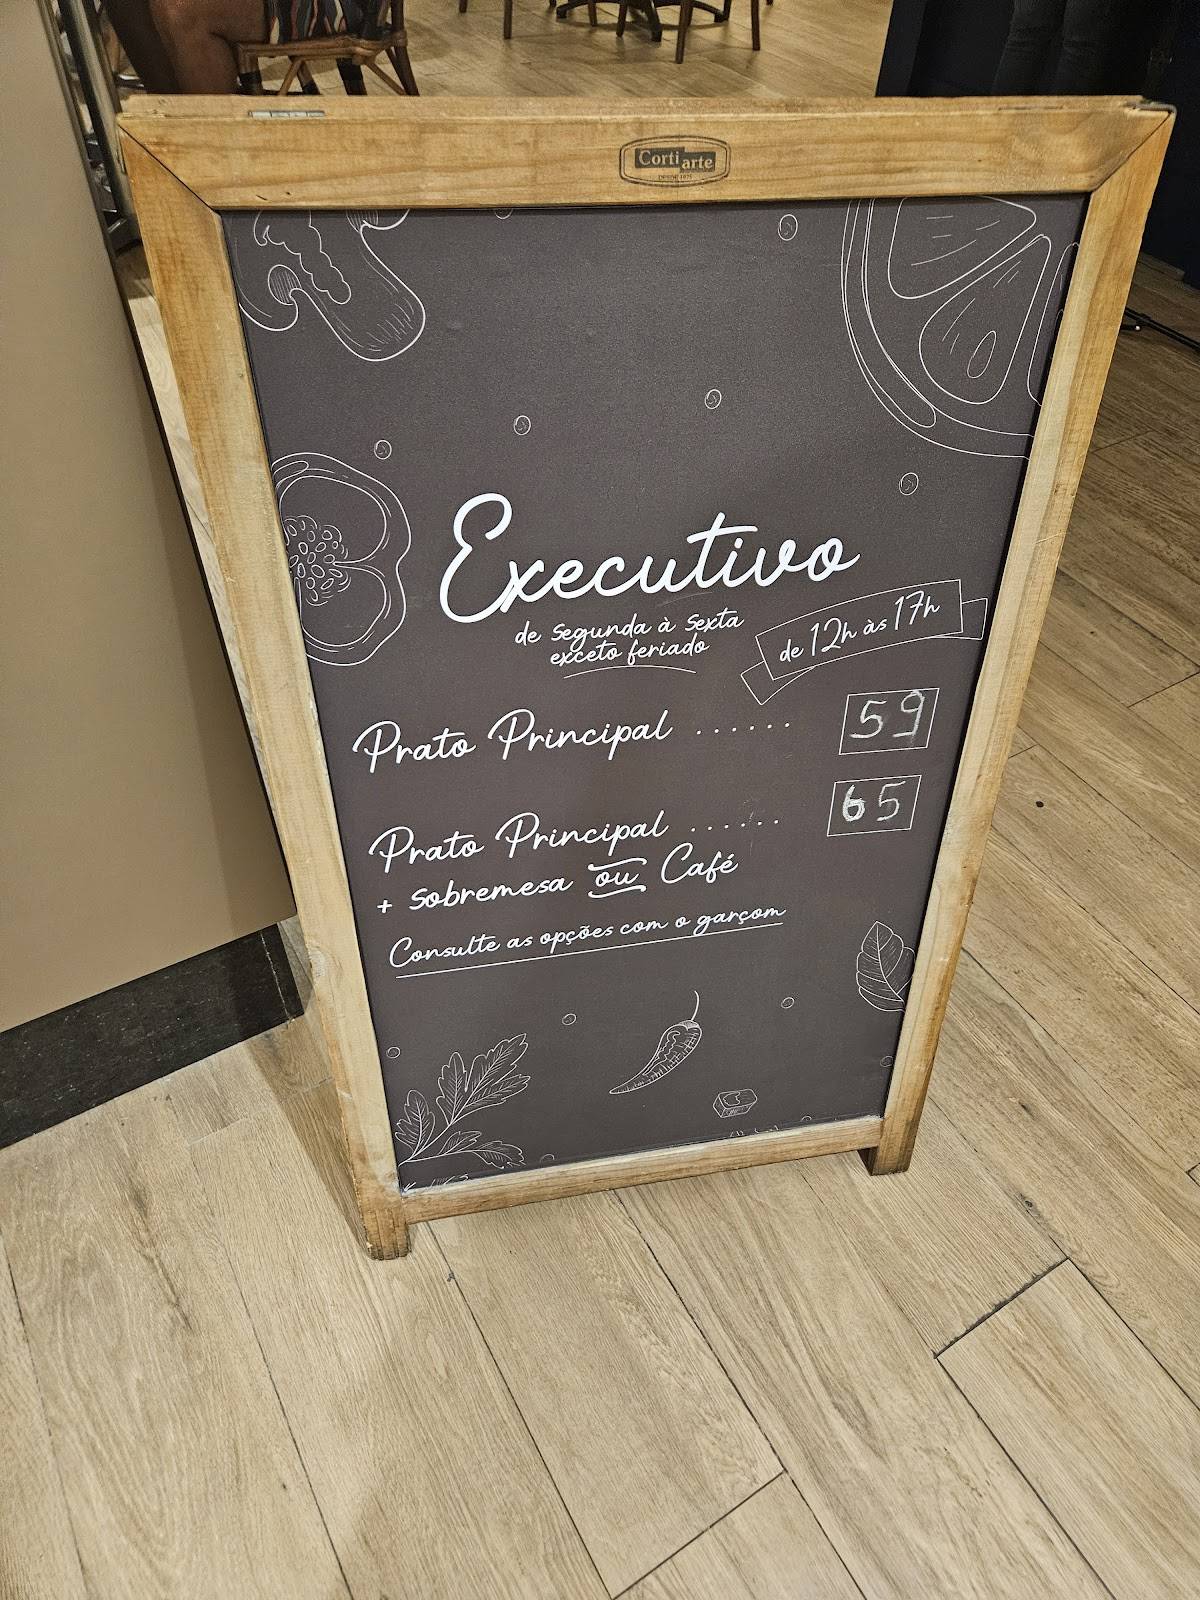 Corti arte
DESDE 1975
Executivo
de segunda à sexta
exceto feriado
de 12h às 17h
Prato Principal ...... 59
Prato Principal ...... 65
+ sobremesa ou Café
Consulte as opções com o garçom